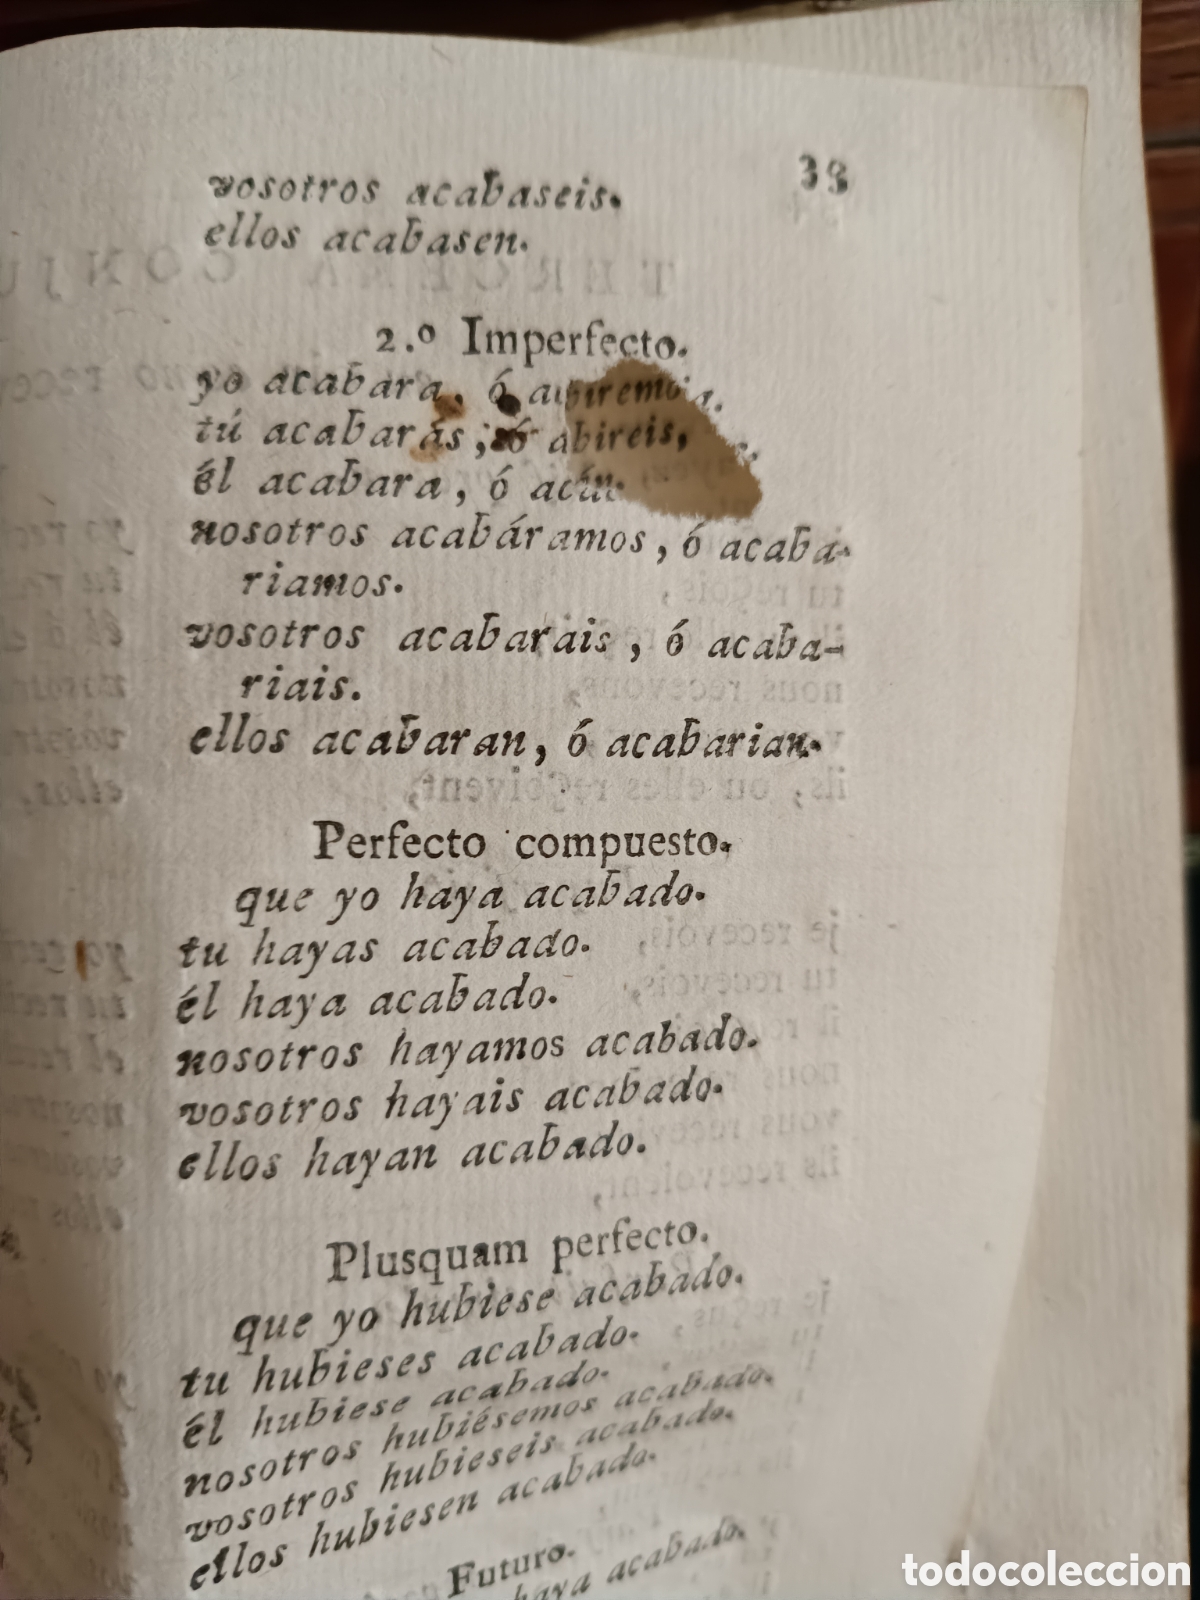 33
vosotros acabaseis.
ellos acabasen.
2.º Imperfecto.
yo acabara, ó
tú acabaras, ó abireis,
él acabara, ó
nosotros acabáramos, ó acaba-
riamos.
vosotros acabarais, ó acaba-
riais.
ellos acabaran, ó acabarian.
Perfecto compuesto.
que yo haya acabado.
tu hayas acabado.
él haya acabado.
nosotros hayamos acabado.
vosotros hayais acabado.
ellos hayan acabado.
Plusquam perfecto.
que yo hubiese acabado.
tu hubieses acabado.
él hubiese acabado.
nosotros hubiésemos acabado.
vosotros hubieseis acabado.
ellos hubiesen acabado.
Futuro.
haya acabado.
todocoleccion